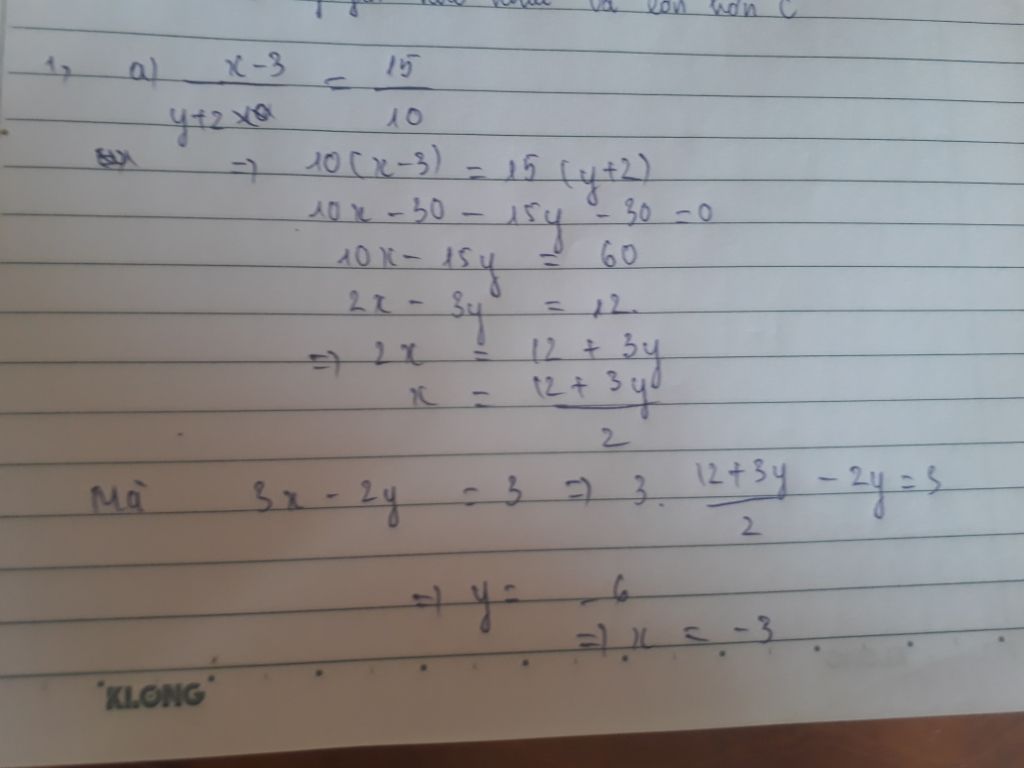 và lớn hơn C
1, a) x-3 / y+2 = 15 / 10
=> 10(x-3) = 15(y+2)
10x - 30 - 15y - 30 = 0
10x - 15y = 60
2x - 3y = 12.
=> 2x = 12 + 3y
x = 12 + 3y / 2
Mà 3x - 2y = 3 => 3. 12+3y / 2 - 2y = 3
=> y = -6
=> x = -3
KLONG